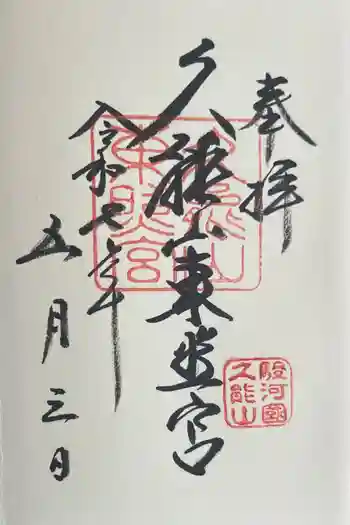 奉拝
久能山東照宮
令和七年
五月三日
久能山
東照宮
駿河國
久能山